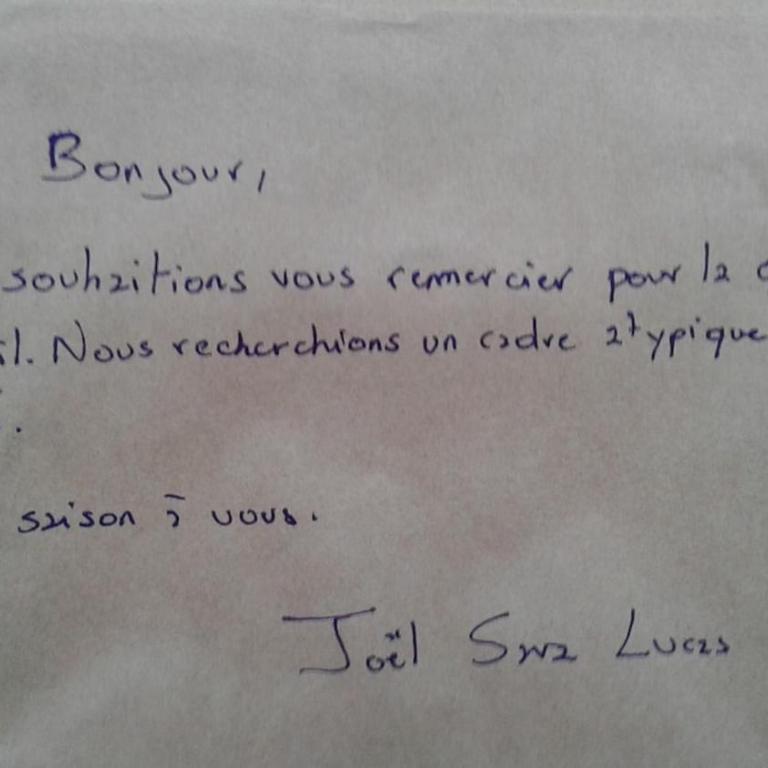 Bonjour,
souhaitions vous remercier pour la
il. Nous recherchions un cadre atypique
.
saison à vous.
Joël Sara Lucas